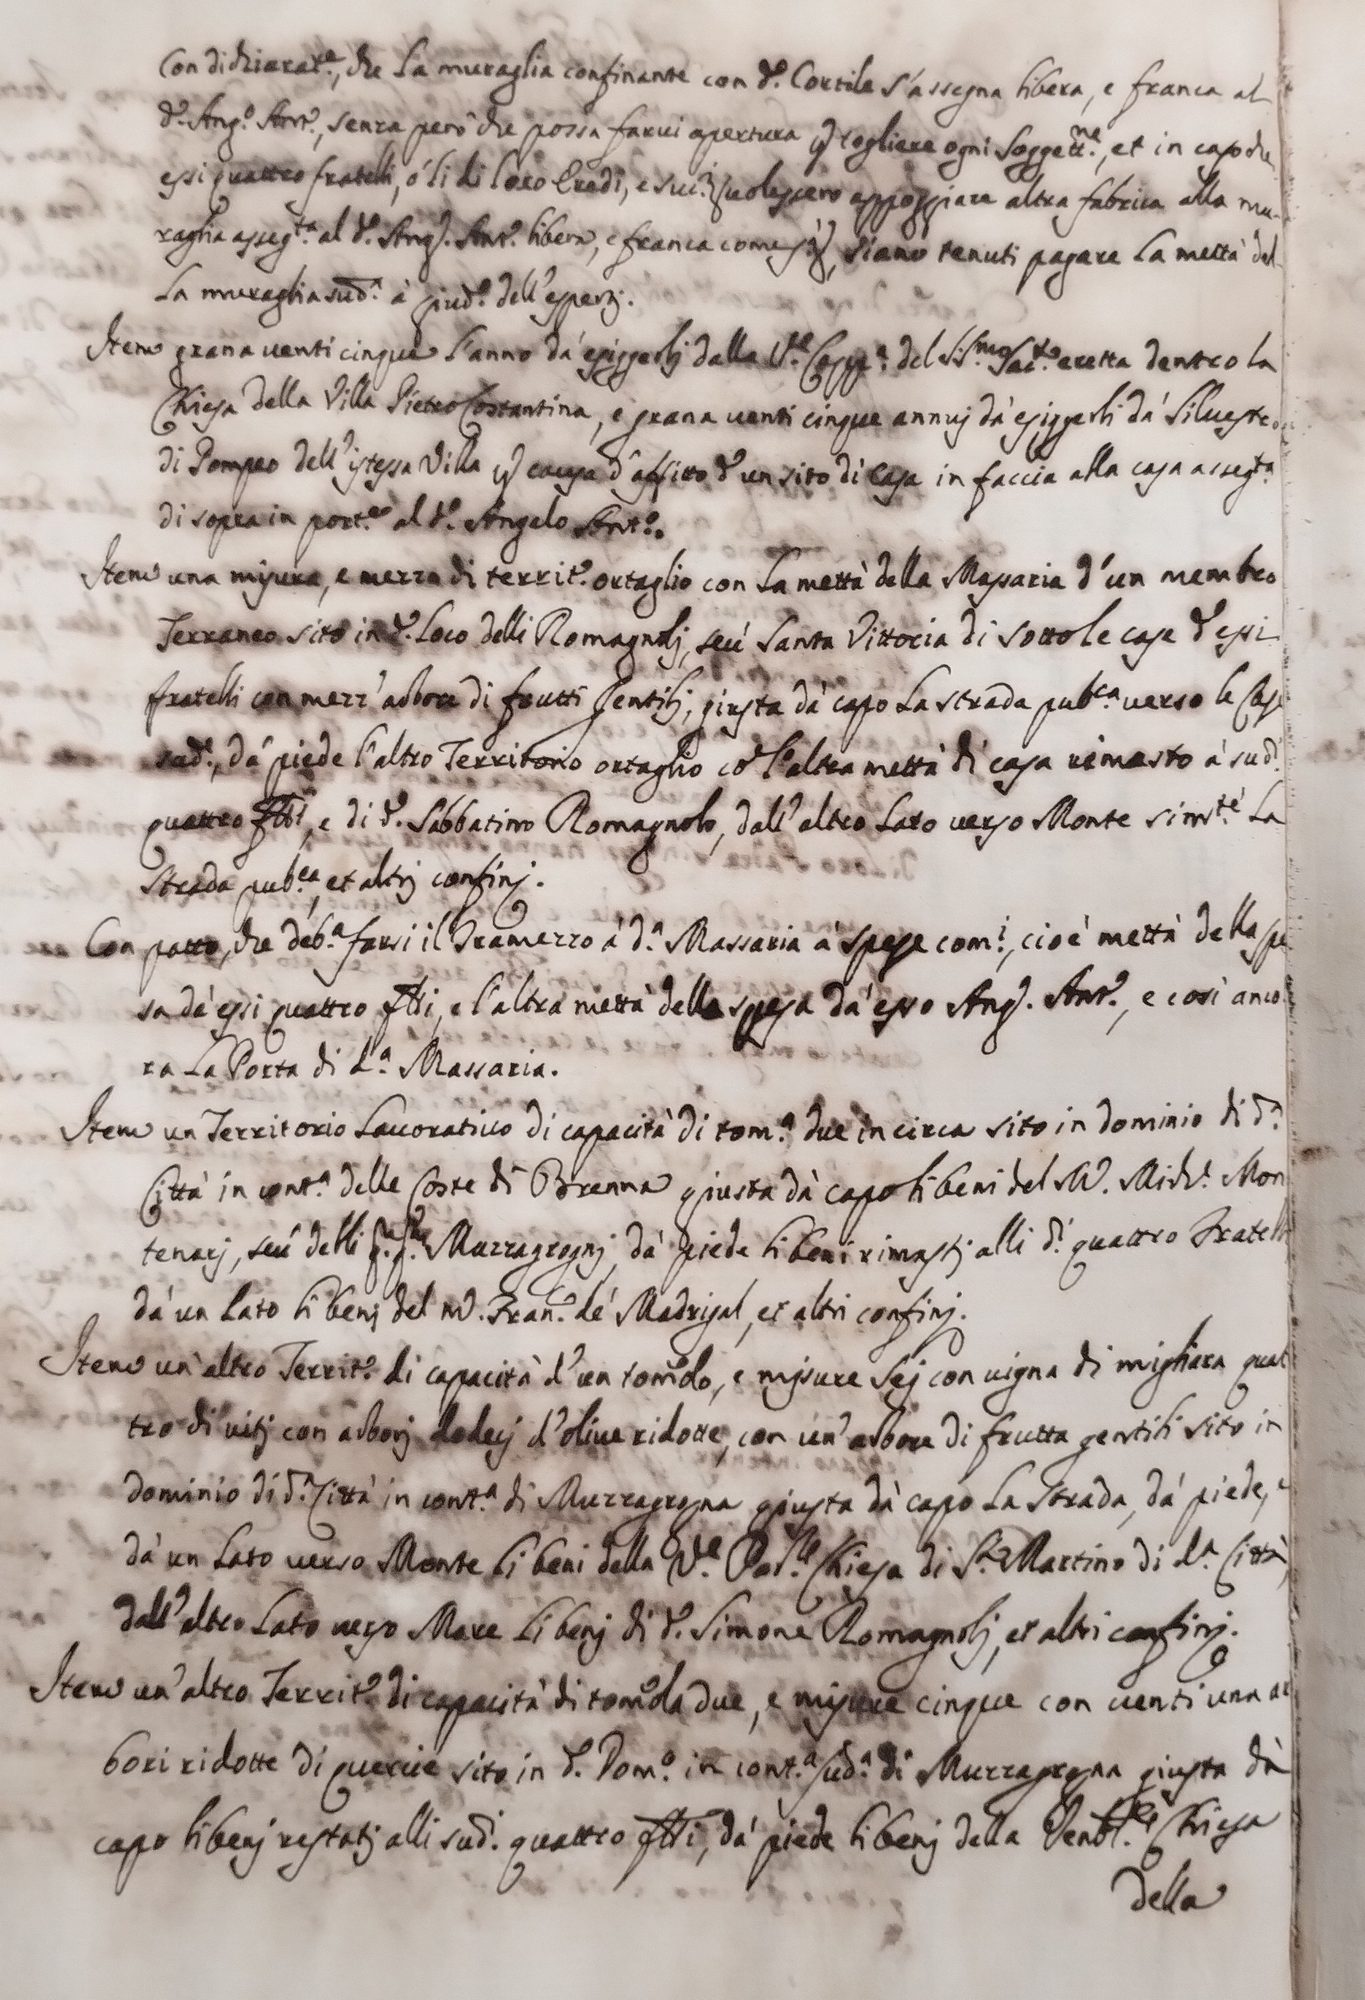 Con dichiarat.e, che la muraglia confinante con d.o Cortile s'assegna libera, e franca al
d.o Ang.o Ant.o, senza però che possa farvi apertura p togliere ogni soggett.ne, et in capo che
essi quattro fratelli, ò li di loro Eredi, e volessero appoggiare altra fabrica alla mu-
raglia asseg.ta al d.o Ang.o Ant.o libera, e franca come, siano tenuti pagare la mettà del-
la muraglia sud.a à giud.o dell'esperti.
Item grana venti cinque l'anno dà esiggerli dalla V.e Capp.a del SS.mo Sac.to eretta dentro la
Chiesa della Villa Pietro Costantina, e grana venti cinque annuj dà esiggerli dà Silvestro
di Pompeo dell'istessa Villa p causa d'affitto d'un sito di Casa in faccia alla casa asseg.ta
di sopra in port.e al d.o Angelo Ant.o.
Item una misura, e mezza di territ.o ortaglio con la mettà della Massaria d'un membro
Terraneo sito in d.o loco delli Romagnolj, seù Santa Vittoria di sotto le case d'essi
fratelli con mezz'arbore di frutti gentilj, giusta dà capo la strada pub.ca verso le Case
sud.e, dà piede l'altro Territorio ortaglio cō l'altra mettà di casa rimasto à sud.i
quattro ftti, e di d.o Sabbatino Romagnolo, dall'altro lato verso Monte simil.te la
strada pub.ca, et altrj confinj.
Con patto, che deb.a farsi il Tramezzo à d.a Massaria à spese com.i, cioè mettà della spe
sa dà essi quattro ftti, e l'altra mettà della spesa dà esso Ang.o Ant.o, e così anco-
ra la Porta di d.a Massaria.
Item un Territorio Lavorativo di capacità di tom.a due in circa sito in dominio di d.a
Città in cont.a delle Coste di Brenna giusta dà capo li beni del M. Mich.e Mon
tenarj, seù delli Muzzagrognj, dà piede li beni rimastj alli d.i quattro Fratelli
dà un lato li benj del M. Fran.o de Madrigal, et altri confinj.
Item un'altro Territ.o di capacità d'un tom̄olo, e misure sej con vigna di migliara quat
tro di vitj con arborj dodecj d'olive ridotte, con un'arbore di frutta gentili sito in
dominio di d.a Città in cont.a di Muzzagrogna giusta dà capo la strada, dà piede, e
dà un lato verso Monte li beni della V.e Par.le Chiesa di S. Martino di d.a Città,
dall'altro lato verso Mare li benj di d.o Simone Romagnolj, et altri confinj.
Item un'altro Territ.o di capacità di tom̄ola due, e misure cinque con venti una ar
bori ridotte di quercie sito in d.o Dom.o in cont.a sud.a di Muzzagrogna giusta dà
capo li benj restatj alli sud.i quattro ftti, dà piede li benj della Venb.le Chiesa
della